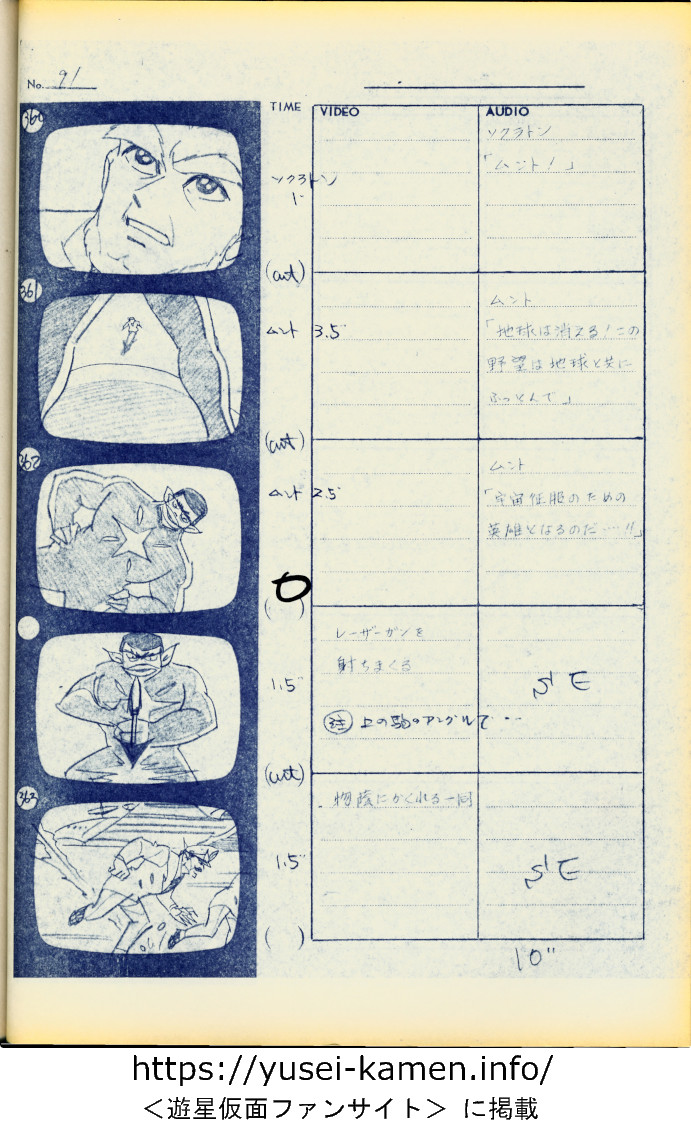 No. 91
TIME
VIDEO
AUDIO
360
ソクラトン
1"
ソクラトン
「ムント!」
(cut)
361
ムント 3.5"
ムント
「地球は消える!この
野望は地球と共に
ふっとんで」
(cut)
362
ムント 2.5"
ムント
「宇宙征服のための
英雄となるのだ…!!」
( )
1.5"
レーザーガンを
射ちまくる
注 上の駒のアングルで・・
S'E
(cut)
363
1.5"
物蔭にかくれる一同
S'E
( )
10"
https://yusei-kamen.info/
<遊星仮面ファンサイト> に掲載